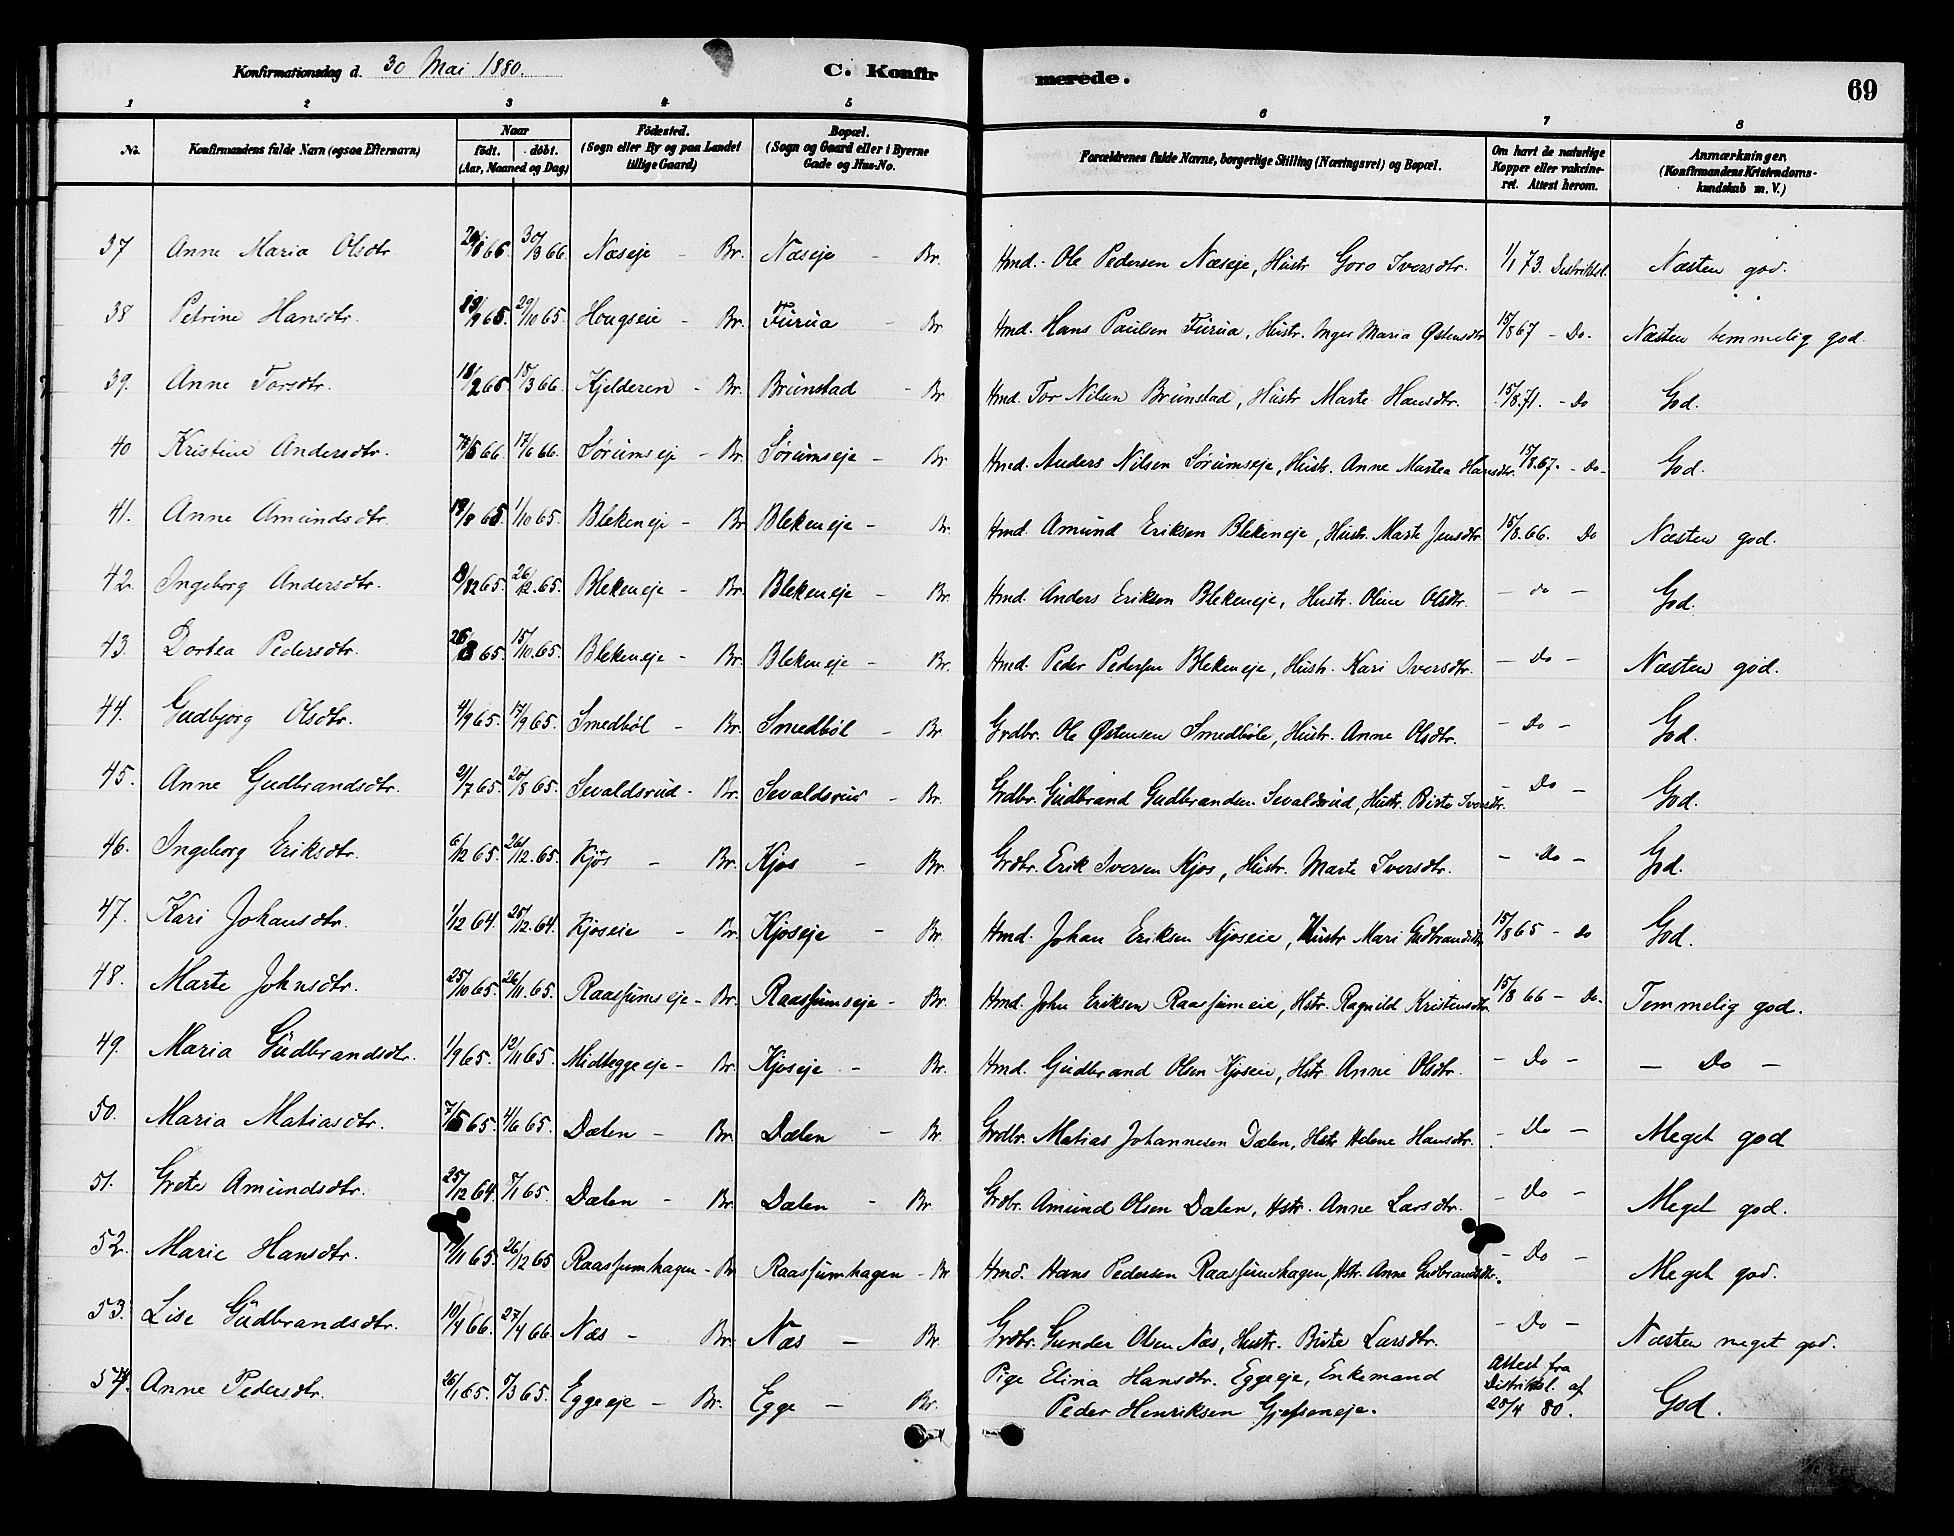 Konfirmationsdag d. 30 Mai 1880. C. Konfirmerede. 69
1 2 3 4 5 6 7 8
No. Konfirmandens fulde Navn (ogsaa Efternavn) Naar født. døbt. (Aar, Maaned og Dag) Fødested. (Sogn eller By og paa Landet tillige Gaard) Bopæl. (Sogn og Gaard eller i Byerne Gade og Hus-No. Forældrenes fulde Navne, borgerlige Stilling (Næringsvei) og Bopæl. Om havt de naturlige Kopper eller vakcineret. Attest herom. Anmærkninger. (Konfirmandens Kristendomskundskab m. V.)
37 Anne Maria Olsdtr. 66 30/3 66. Næseje - Br. Næseje - Br. Hmd. Ole Pedersen Næseje, Hustr Goro Iversdtr. 1/1 73. Distriktsl. Næsten god.
38 Petrine Hansdtr. 19/9 65. 29/10 65. Hougseie - Br. Furua - Br Hmd. Hans Paulsen Furua, Hustr. Inger Maria Østensdtr 15/8 67 - Do. Næsten temmelig god.
39. Anne Torsdtr. 18/2 66 18/3 66. Kjelderen - Br. Brunstad - Br Hmd. Tor Nilsen Brunstad, Hustr Marte Hansdtr. 15/8 71. - Do God.
40 Kristine Andersdtr. 7/5 66 17/6 66. Sørumseje - Br. Sørumseje - Br. Hmd. Anders Nilsen Sørumseje, Hustr. Anne Martea Hansdtr. 15/8 67. - Do - God.
41. Anne Amundsdtr. 18/8 65 1/10 65. Blekeneje - Br Blekeneje - Br. Hmd. Amund Eriksen Blekeneje, Hustr. Marte Jensdtr 15/8 66. Do Næsten god.
42. Ingeborg Andersdtr. 8/12 65. 26/12 65. Blekeneje - Br. Blekeneje - Br. Hmd. Anders Eriksen Blekeneje, Hustr. Oline Olsdtr. - do - God.
43. Dortea Pedersdtr. 26/8 65. 15/10 65. Blekeneje - Br. Blekeneje - Br. Hmd. Peder Pedersen Blekeneje, Hustr. Kari Iversdtr. - Do - Næsten god.
44. Gudbjørg Olsdtr. 4/9 65. 17/9 65. Smedbøl - Br. Smedbøl - Br Grdbr. Ole Østensen Smedbøle, Hustr. Anne Olsdtr. - Do - God.
45. Anne Gudbrandsdtr. 2/7 65. 20/8 65. Sevaldsrud - Br. Sevaldsrud - Br. Grdbr. Gudbrand Gudbrandsen Sevaldsrud, Hustr. Birte Iversdtr. - Do - God.
46. Ingeborg Eriksdtr. 6/12 65. 26/12 65. Kjøs - Br. Kjøs - Br. Grdbr. Erik Iversen Kjøs, Hustr. Marte Iversdtr. - Do - God.
47. Kari Johansdtr. 1/12 64. 25/12 64. Kjøseie - Br. Kjøseje - Br. Hmd. Johan Eriksen Kjøseie, Hustr Mari Gudbrandsdtr 15/8 65 - Do God.
48. Marte Johnsdtr. 25/10 65. 26/11 65. Raassumseje - Br. Raassumseje - Br. Hmd. John Eriksen Raassumeie, Hstr. Ragnild Kristensdtr 15/8 66 - Do. Temmelig god.
49. Maria Gudbrandsdtr. 1/9 65. 12/11 65. Midteggeeje - Br Kjøseje - Br. Hmd. Gudbrand Olsen Kjøseie, Hstr. Anne Olsdtr. - Do - - Do -
50. Maria Matiasdtr. 7/5 65. 4/6 65. Dælen - Br. Dælen - Br. Grdbr. Matias Johannesen Dælen, Hstr Helene Hansdtr. - Do - Meget god
51. Grete Amundsdtr. 25/12 64. /1 65. Dælen - Br. Dælen - Br. Grdbr. Amund Olsen Dælen, Hstr. Anne Larsdtr. - Do - Meget god.
52. Marie Hansdtr. /11 65. 26/12 65 Raassumhagen - Br Raassumhagen - Br Hmd. Hans Pedersen Raassumhagen, Hstr. Anne Gudbrandsdtr. - Do Meget god.
53. Lise Gudbrandsdtr. 10/4 66. 27/4 66. Næs - Br. Næs - Br. Grdbr. Gunder Olsen Næs, Hustr. Birte Larsdtr. - Do - Næsten meget god.
54. Anne Pedersdtr. 26/1 65. /3 65. Eggeeje - Br. Egge - Br. Pige Elina Hansdtr. Eggeeje, Enkemand Peder Henriksen Gjefseneje. Attest fra Distriktsl. af 28/4 80. God.